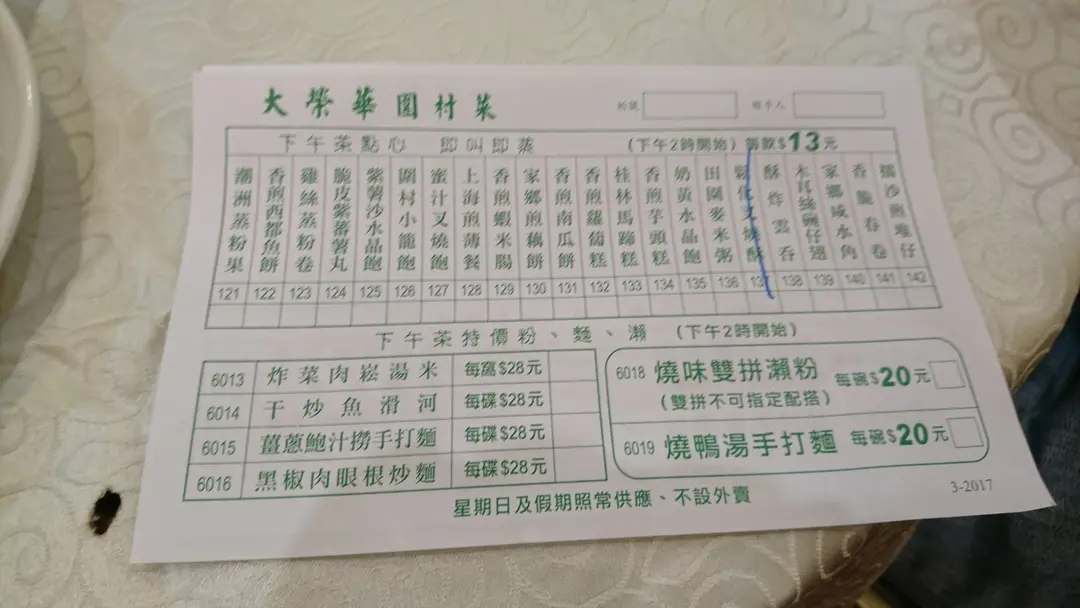 大榮華圍村菜
枱號
經手人
下午茶點心 即叫即蒸 (下午2時開始) 每款$13元
潮洲蒸粉果 121
香煎西都魚餅 122
雞絲蒸粉卷 123
脆皮紫蕃薯丸 124
紫薯沙水晶飽 125
圍村小籠飽 126
蜜汁叉燒飽 127
上海煎薄餐 128
香煎蝦米腸 129
家鄉煎藕餅 130
香煎南瓜餅 131
香煎蘿蔔糕 132
桂林馬蹄糕 133
香煎芋頭糕 134
奶黃水晶飽 135
田園麥米粥 136
叉燒酥 137
酥炸雲吞 138
木耳絲碗仔翅 139
家鄉咸水角 140
香脆春卷 141
擂沙煎堆仔 142
下午茶特價粉、麵、瀨 (下午2時開始)
6013 炸菜肉崧湯米 每窩$28元
6014 干炒魚滑河 每碟$28元
6015 薑蔥鮑汁撈手打麵 每碟$28元
6016 黑椒肉眼根炒麵 每碟$28元
6018 燒味雙拼瀨粉 每碗$20元
(雙拼不可指定配搭)
6019 燒鴨湯手打麵 每碗$20元
星期日及假期照常供應、不設外賣
3-2017